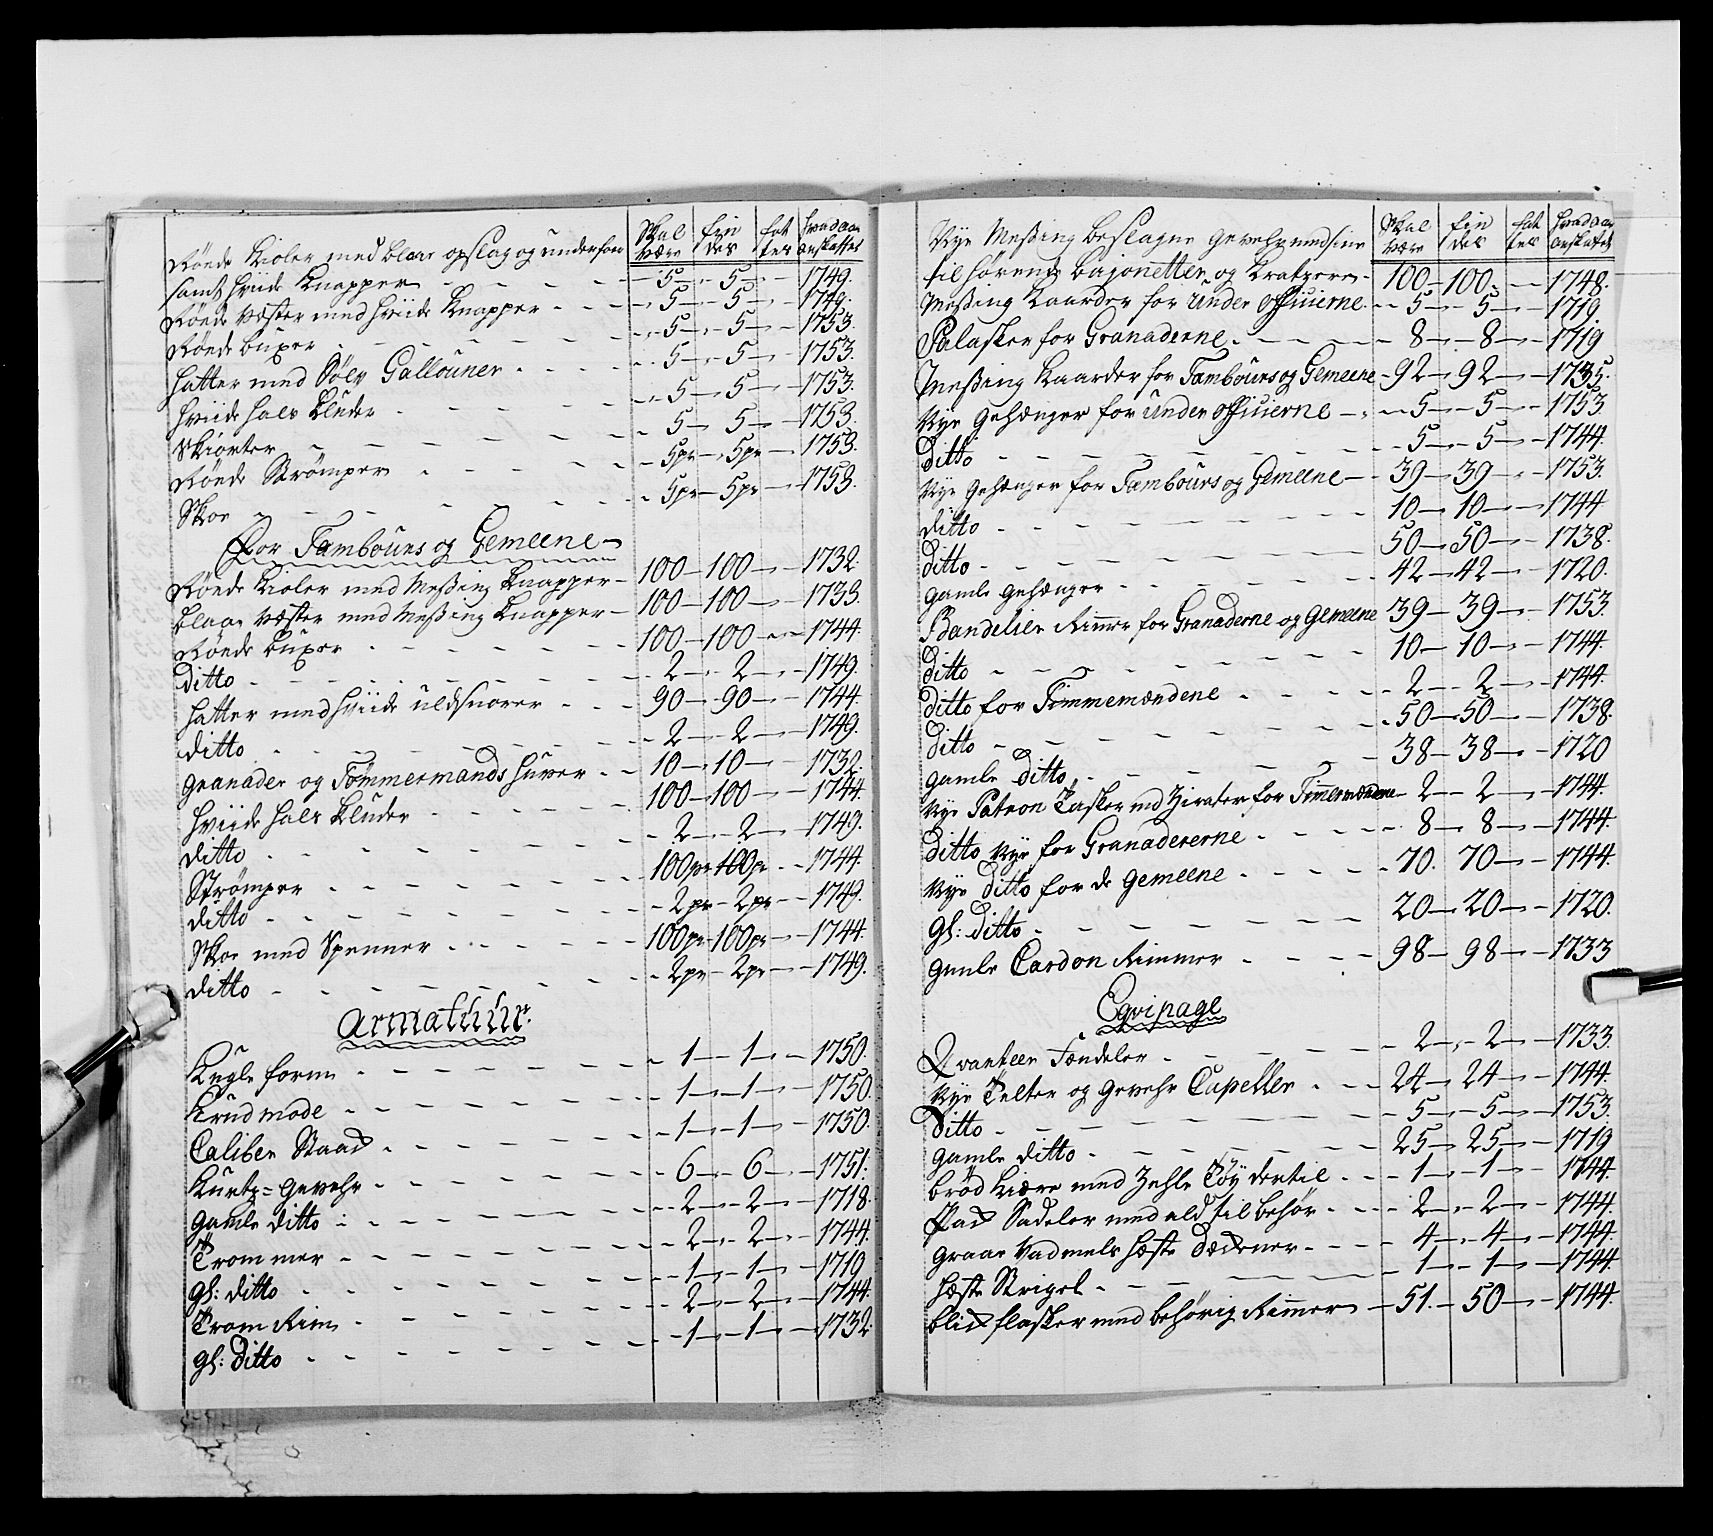 Skal være | Fin des | Fat tes | hvad aar anskaffet
Røede Kioler med blaae opslag og underfoer
samt hviide Knapper - 5 - 5 - 1749.
Røede Vester med hviide Knapper - 5 - 5 - 1749.
Røede Buxer - 5 - 5 - 1753.
Hatter med Sølv Gallouner - 5 - 5 - 1753.
Hviide Hals Kluder - 5 - 5 - 1753.
Skiorter - 5 - 5 - 1753.
Røede Strømper - 5 pr - 5 pr - 1753.
Skoe - 5 pr - 5 pr - 1753.
For Tambours og Gemeene
Røede Kioler med Messing Knapper - 100 - 100 - 1732.
Blaae Vester med Messing Knapper - 100 - 100 - 1733.
Røede Buxer - 100 - 100 - 1744.
Ditto - 2 - 2 - 1749.
Hatter med hviide uldsnorer - 90 - 90 - 1744.
Ditto - 2 - 2 - 1749.
Granader og Tømmermands Huver - 10 - 10 - 1732.
Hviide Hals Kluder - 100 - 100 - 1744.
Ditto - 2 - 2 - 1749.
Strømper - 100 pr - 100 pr - 1744.
Ditto - 2 pr - 2 pr - 1749.
Skoe med Spenner - 100 pr - 100 pr - 1744.
Ditto - 2 pr - 2 pr - 1749.
Armatuur.
Kugle form - 1 - 1 - 1750.
Krudmode - 1 - 1 - 1750.
Caliber Staad - 1 - 1 - 1750.
Kurtz=Gevehr - 6 - 6 - 1751.
Gamle Ditto - 2 - 2 - 1718.
Trommer - 2 - 2 - 1744.
Gl: Ditto - 1 - 1 - 1719
Trom Rim - 2 - 2 - 1744.
Gl: Ditto - 1 - 1 - 1732.
Skal være | Fin des | Fat tes | hvad aar anskaffet
Nye Messing beslagne Gevehr med sine
tilhørende bajonetter og Kratzere - 100 - 100 - 1748.
Messing Kaarder for Under Officierne - 5 - 5 - 1719
Palasker for Granaderne - 8 - 8 - 1719
Messing Kaarder for Tambours og Gemeene - 92 - 92 - 1735.
Nye Gehænger for Under Officierne - 5 - 5 - 1753.
Ditto - 5 - 5 - 1744.
Nye Gehænger for Tambours og Gemeene - 39 - 39 - 1753.
Ditto - 10 - 10 - 1744
Ditto - 50 - 50 - 1738.
Gamle Gehænger - 42 - 42 - 1720.
Bandelier Rimer for Granaderne og Gemeene 39 - 39 - 1753.
Ditto - 10 - 10 - 1744.
Ditto for Tømmermændene - 2 - 2 - 1744.
Ditto - 50 - 50 - 1738.
Gamle Ditto - 38 - 38 - 1720
Nye Patron Tasker med Zirater for Timermændene - 2 - 2 - 1744.
Ditto Nye for Granadererne - 8 - 8 - 1744.
Nye Ditto for de Gemeene - 70. 70 - 1744.
Gl: Ditto - 20 - 20 - 1720.
Gamle Cardon Rimmer - 98 - 98 - 1733
Eqvipage
Qvarteer Fændeler - 2 - 2 - 1733.
Nye Telter og Gevehr Capeller - 24 - 24 - 1744.
Ditto - 5 - 5 - 1753.
Gamle Ditto - 25 - 25 - 1719
Brød Kiære med Zehle Tøy dertil - 1 - 1 - 1744.
Pack Sadeler med ald tilbehør - 2 - 2 - 1744.
Graae Vadmels Heste Dækener - 4 - 4 - 1744.
Heste Strigel - 1 - 1 - 1744.
Blick flasker med behørig Rimmer - 51. - 50 - 1744.